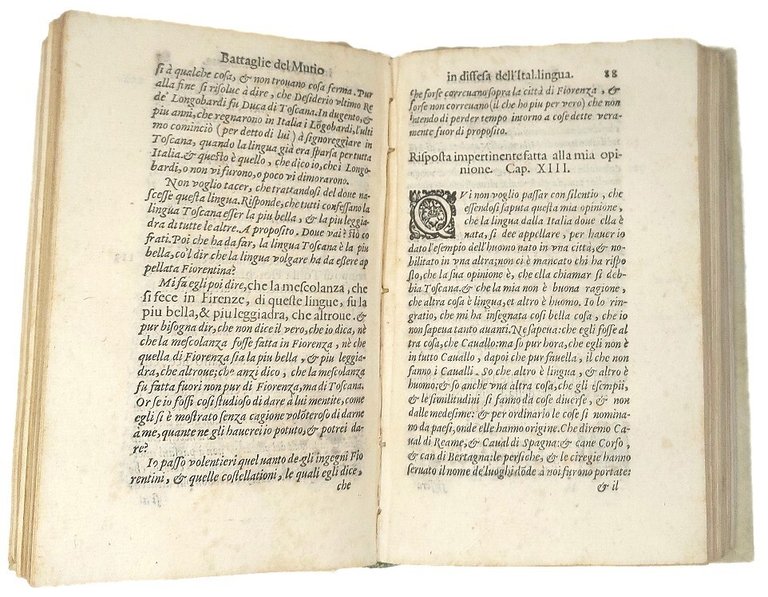 Battaglie del Mutio
si à qualche cosa, & non trouano cosa ferma. Pur
alla fine si risolue à dire, che Desiderio vltimo Re
de' Longobardi fu Duca di Toscana. In dugento, &
piu anni, che regnarono in Italia i Lõgobardi, l'ulti
mo cominciò (per detto di lui) à signoreggiare in
Toscana, quando la lingua già era sparsa per tutta
Italia. & questo è quello, che dico io, che i Longo-
bardi, o non vi furono, o poco vi dimorarono.
Non voglio tacer, che trattandosi del doue na-
scesse questa lingua. Risponde, che tutti confessano la
lingua Toscana esser la piu bella, & la piu leggia-
dra di tutte le altre. A proposito. Doue vai? Io sò co
frati. Poi che ha da far, la lingua Toscana è la piu
bella, co'l dir che la lingua volgare ha da essere ap
pellata Fiorentina?
Mi fa egli poi dire, che la mescolanza, che
si fece in Firenze, di queste lingue, fu la
piu bella, & piu leggiadra, che altroue. &
pur bisogna dir, che non dice il vero, che io dica, nè
che la mescolanza fosse fatta in Fiorenza, nè che
quella di Fiorenza sia la piu bella, & piu leggia-
dra, che altroue; che anzi dico, che la mescolanza
fu fatta fuori non pur di Fiorenza, ma di Toscana.
Or se io fossi cosi studioso di dare à lui mentite, come
egli si è mostrato senza cagione volõteroso di darne
à me, quante ne gli haurei io potuto, & potrei da-
re?
Io passo volentieri quel uanto de gli ingegni Fio
rentini, & quelle costellationi, le quali egli dice,
che
in diffesa dell'Ital. lingua. 88
che forse correuano sopra la città di Fiorenza, &
forse non correuano (il che ho piu per vero) che non
intendo di perder tempo intorno a cose dette vera-
mente fuor di proposito.
Risposta impertinente fatta alla mia opi-
nione. Cap. XIII.
QVi non voglio passar con silentio, che
essendosi saputa questa mia opinione,
che la lingua dalla Italia doue ella è
nata, si dee appellare, per hauer io
dato l'esempio dell'huomo nato in vna città, & no-
bilitato in vna altra; non ci è mancato chi ha rispo
sto, che la sua opinione è, che ella chiamar si deb-
bia Toscana. & che la mia non è buona ragione,
che altra cosa è lingua, et altro è huomo. Io lo rin-
gratio, che mi ha insegnato cosi bella cosa, che io
non sapeua tanto auanti. Ne sapeua: che egli fosse al
tra cosa, che Cauallo: ma so pur hora, che egli non è
in tutto Cauallo, dapoi che pur fauella, il che non
fanno i Caualli. So che altro è lingua, & altro è
huomo: & so anche vna altra cosa, che gli esempii,
& le similitudini si fanno da cose diuerse, & non
dalle medesime: & per ordinario le cose si nomina-
no da paesi, onde elle hanno origine. Che diremo Ca
ual di Reame, & Caual di Spagna: & cane Corso,
& can di Bertagna: le persiche, & le ciregie hanno
seruato il nome de' luoghi dõde à noi furono portate:
& il